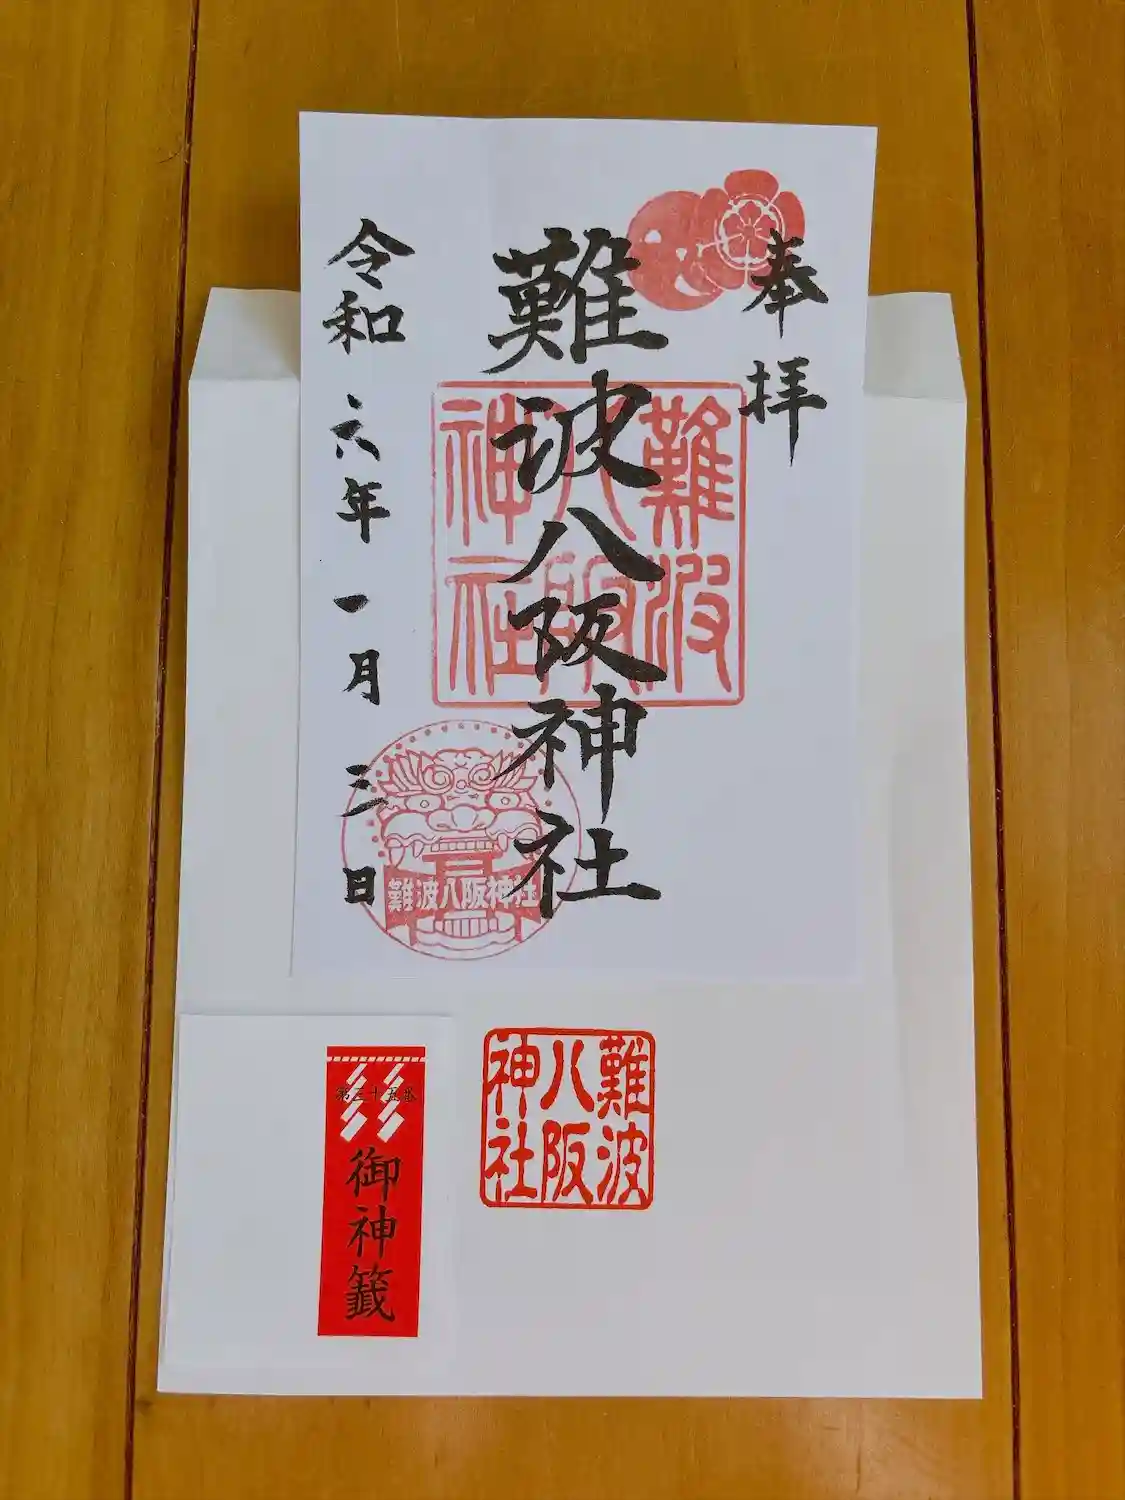 奉拝
難波八阪神社
令和六年一月三日
難波八阪神社
難波八阪神社
難波八阪神社
第三十五番
御神籤